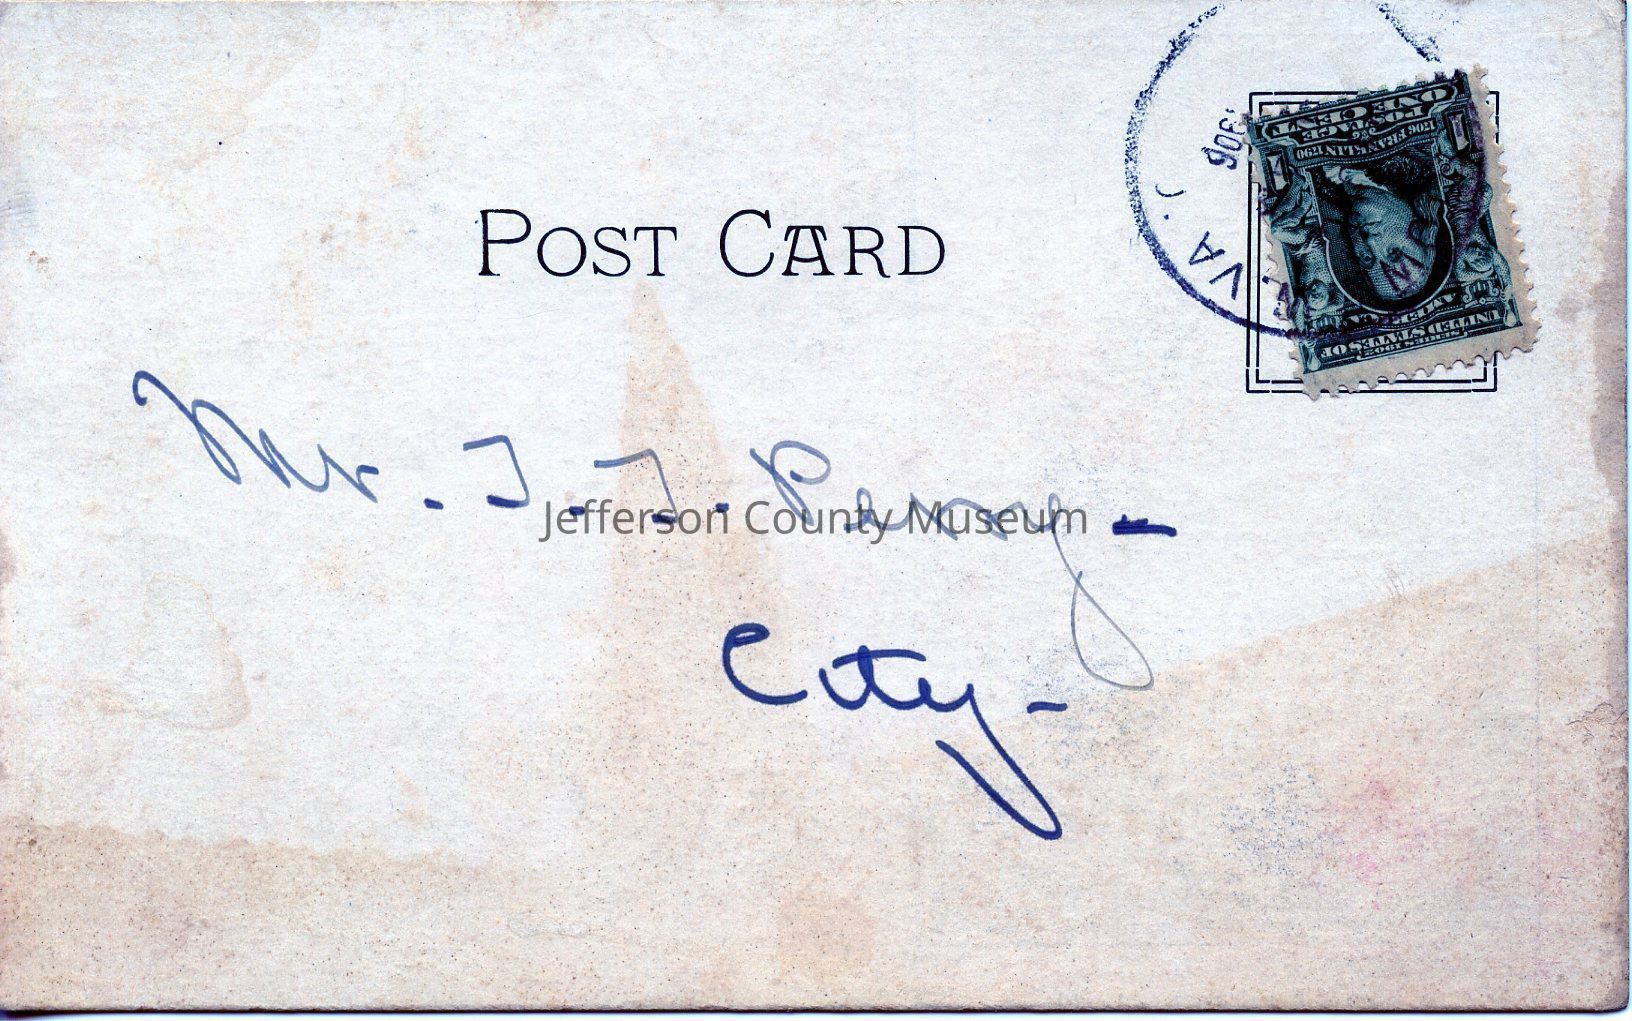 POST CARD
1906
W. VA.
ONE CENT
POSTAGE
FRANKLIN 1790
1 1
SERIES 1902
UNITED STATES OF
AMERICA
Mr. T. T. Perry -
City -
Jefferson County Museum